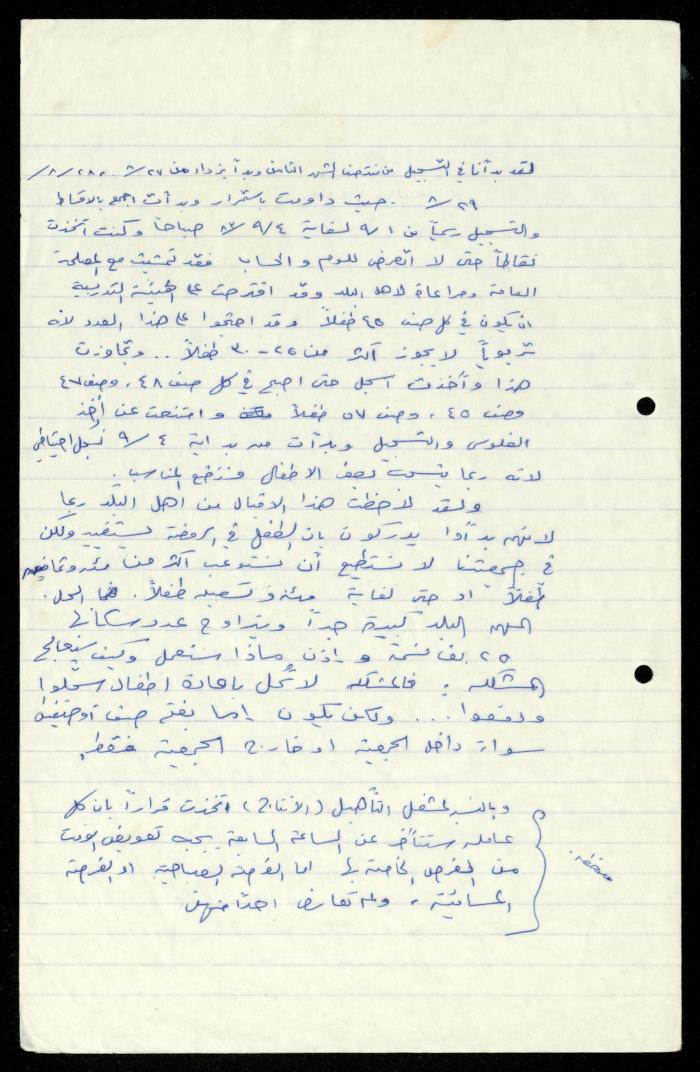 لقد بدأنا في التسجيل من منتصف الشهر الثامن وبدأ يزداد من ٢٧/٨، ٢٨/٨/
٢٩/٨. حيث داومت باستمرار وبدأت اجمع بالاقساط
والتسجيل رسمياً من ٩/١ لغاية ٩/٤/٨٣ صباحاً وكنت اتخذت
نقاطاً حتى لا اتعرض للوم والحساب فقد تمشيت مع المصلحة
العامة ومراعاة لاهل البلد وقد اقترحت على الهيئة التدريسية
ان يكون في كل صف ٤٥ طفلاً وقد احتجوا على هذا العدد لأنه
تربوياً لا يجوز أكثر من ٢٥ - ٣٠ طفلاً .. وتجاوزت
هذا وأخذت اسجل حتى اصبح في كل صف ٤٨، وصف ٤٧
وصف ٤٥، وصف ٥٧ طفلاً وامتنعت عن أخذ
الفلوس والتسجيل وبدأت من بداية ٩/٤ نسجل احتياطي
لانه ربما ينسحب بعض الاطفال فنضع المناسب.
ولقد لاحظت هذا الاقبال من اهل البلد ربما
لانهم بدأوا يدركون بان الطفل في الروضة يستفيد ولكن
في جمعيتنا لا نستطيع أن نستوعب اكثر من مئة وثمانين
طفلاً او حتى لغاية مئة وتسعين طفلاً. فما الحل.
المهم البلد كبيرة جداً ويتراوح عدد سكانها
٢٥ الف نسمة وإذن ماذا سنعمل وكيف سنعالج
المشكلة؟ فالمشكلة لا تُحل باعادة اطفال سجلوا
ودفعوا ... ولكن يكون إما بفتح صف أوصفين
سواء داخل الجمعية او خارج الجمعية فقط.
وبالنسبة لمشغل التأهيل (الانتاج) اتخذت قراراً بان كل
عاملة ستتأخر عن الساعة السابعة يجب تعويض الوقت
من الفرص الخاصة بها اما الفرصة الصباحية او الفرصة
المسائية، ولم تعارض احداً منهن